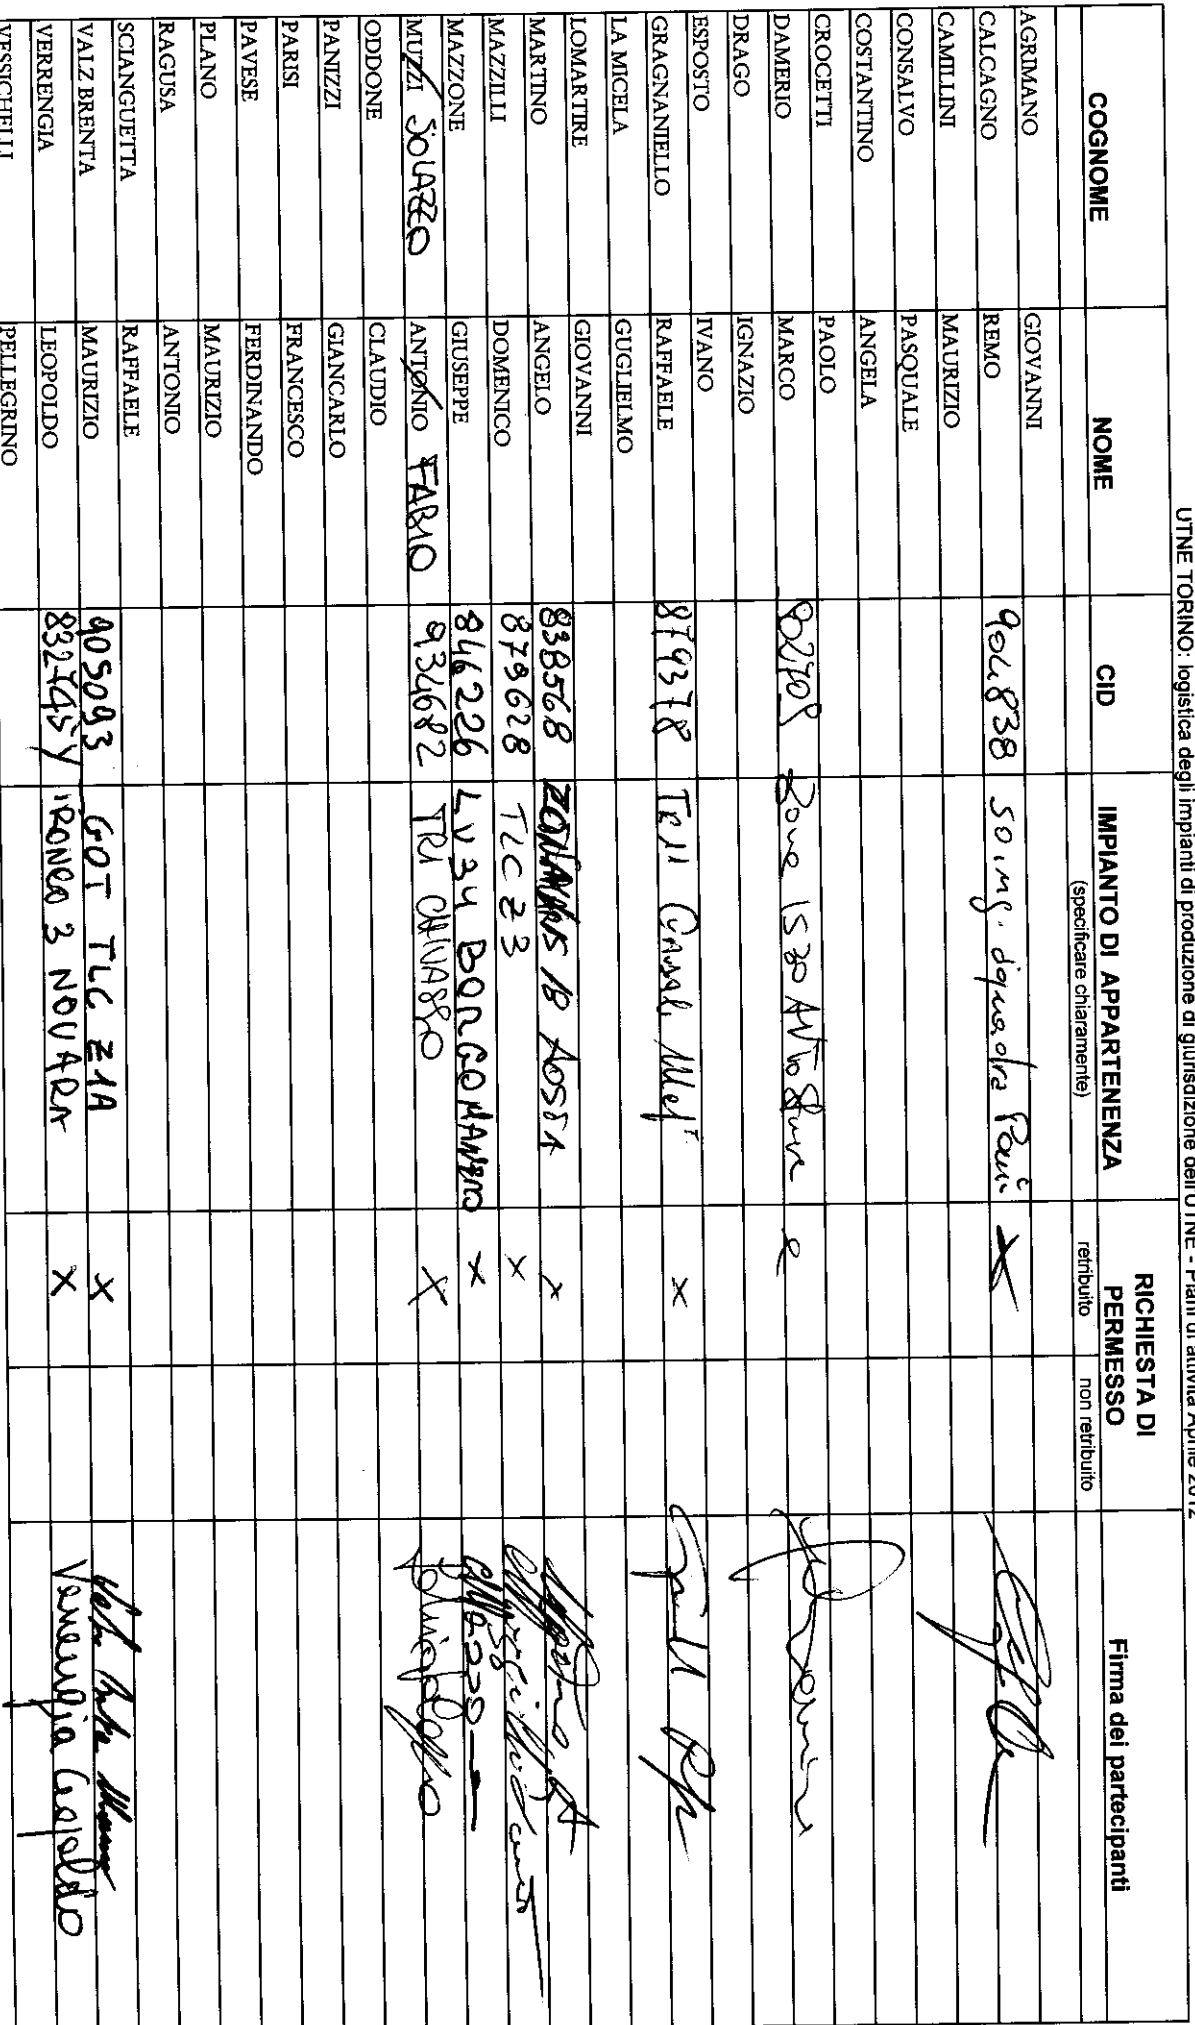 UTNE TORINO: logistica degli impianti di produzione di giurisdizione dell'UTNE - Piani di attività Aprile 2012
COGNOME NOME CID IMPIANTO DI APPARTENENZA (specificare chiaramente) RICHIESTA DI PERMESSO retribuito non retribuito Firma dei partecipanti
AGRIMANO GIOVANNI
CALCAGNO REMO 904838 X
CAMILLINI MAURIZIO
CONSALVO PASQUALE
COSTANTINO ANGELA
CROCETTI PAOLO
DAMERIO MARCO 802708 Zona
DRAGO IGNAZIO
ESPOSTO IVANO
GRAGNANIELLO RAFFAELE 879378 X
LA MICELA GUGLIELMO
LOMARTIRE GIOVANNI
MARTINO ANGELO 838568 18 AOSTA X
MAZZILLI DOMENICO 879628 TLC Z3 X
MAZZONE GIUSEPPE 846226 LV34 BORGOMANERO X
MUZZI SOLAZZO ANTONIO FABIO 934682 TR1 CHIVASSO X
ODDONE CLAUDIO
PANIZZI GIANCARLO
PARISI FRANCESCO
PAVESE FERDINANDO
PLANO MAURIZIO
RAGUSA ANTONIO
SCIANGUETTA RAFFAELE
VALZ BRENTA MAURIZIO 905093 GOT TLC Z1A X
VERRENGIA LEOPOLDO 832745Y TRONCO 3 NOVARA X Verrengia Leopoldo
VESSICHELLI PELLEGRINO